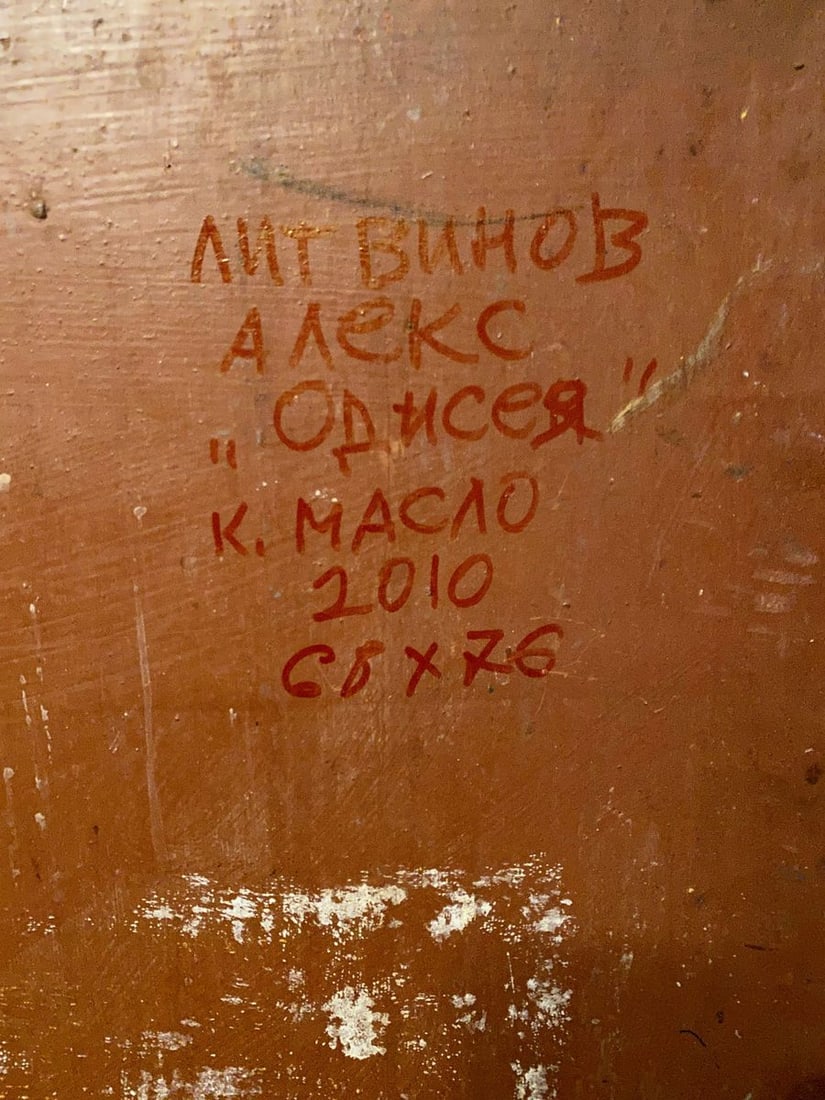 ЛИТВИНОВ
АЛЕКС
„Одисея"
К. МАСЛО
2010
68х76